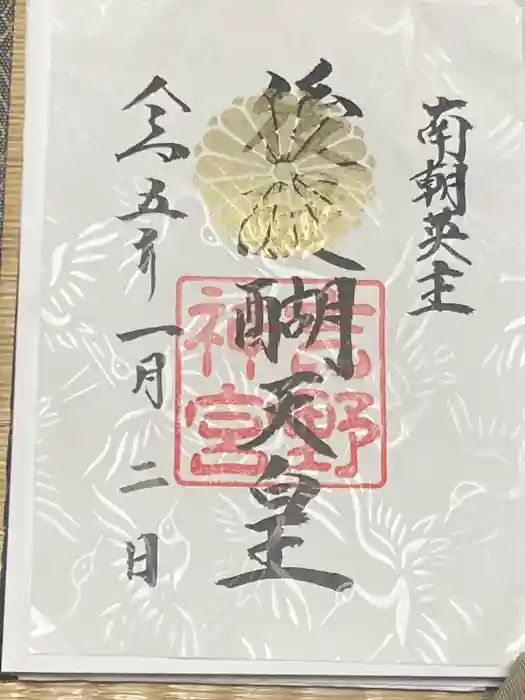 南朝英主
後醍醐天皇
吉野
神宮
令和五年一月二日